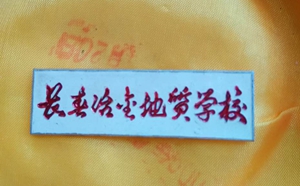 长春冶金地质学校